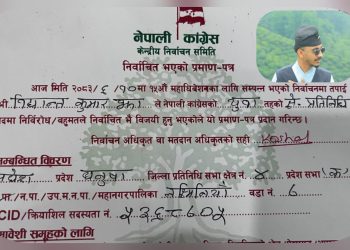 नेपाली कांग्रेस
केन्द्रीय निर्वाचन समिति
निर्वाचित भएको प्रमाण-पत्र
आज मिति २०८२/६/१० मा १५औं महाधिवेशनका लागि सम्पन्न भएको निर्वाचनमा तपाईं
श्री कुमार झा ले नेपाली कांग्रेसको युवा तहको क्षे. प्रतिनिधि
पदमा निर्विरोध/बहुमतले निर्वाचित भै विजयी हुनु भएकोले यो प्रमाण-पत्र प्रदान गरिन्छ।
निर्वाचन अधिकृत वा मतदान अधिकृतको सही
सम्बन्धित विवरण
प्रदेश धनुषा जिल्ला प्रतिनिधि सभा क्षेत्र नं. ४ प्रदेश सभा (क)
न.पा./उ.म.न.पा./महानगरपालिका वडा नं. ६
CID/क्रियाशिल सदस्यता नं. ५३६८६०२
समावेशी समूहको लागि